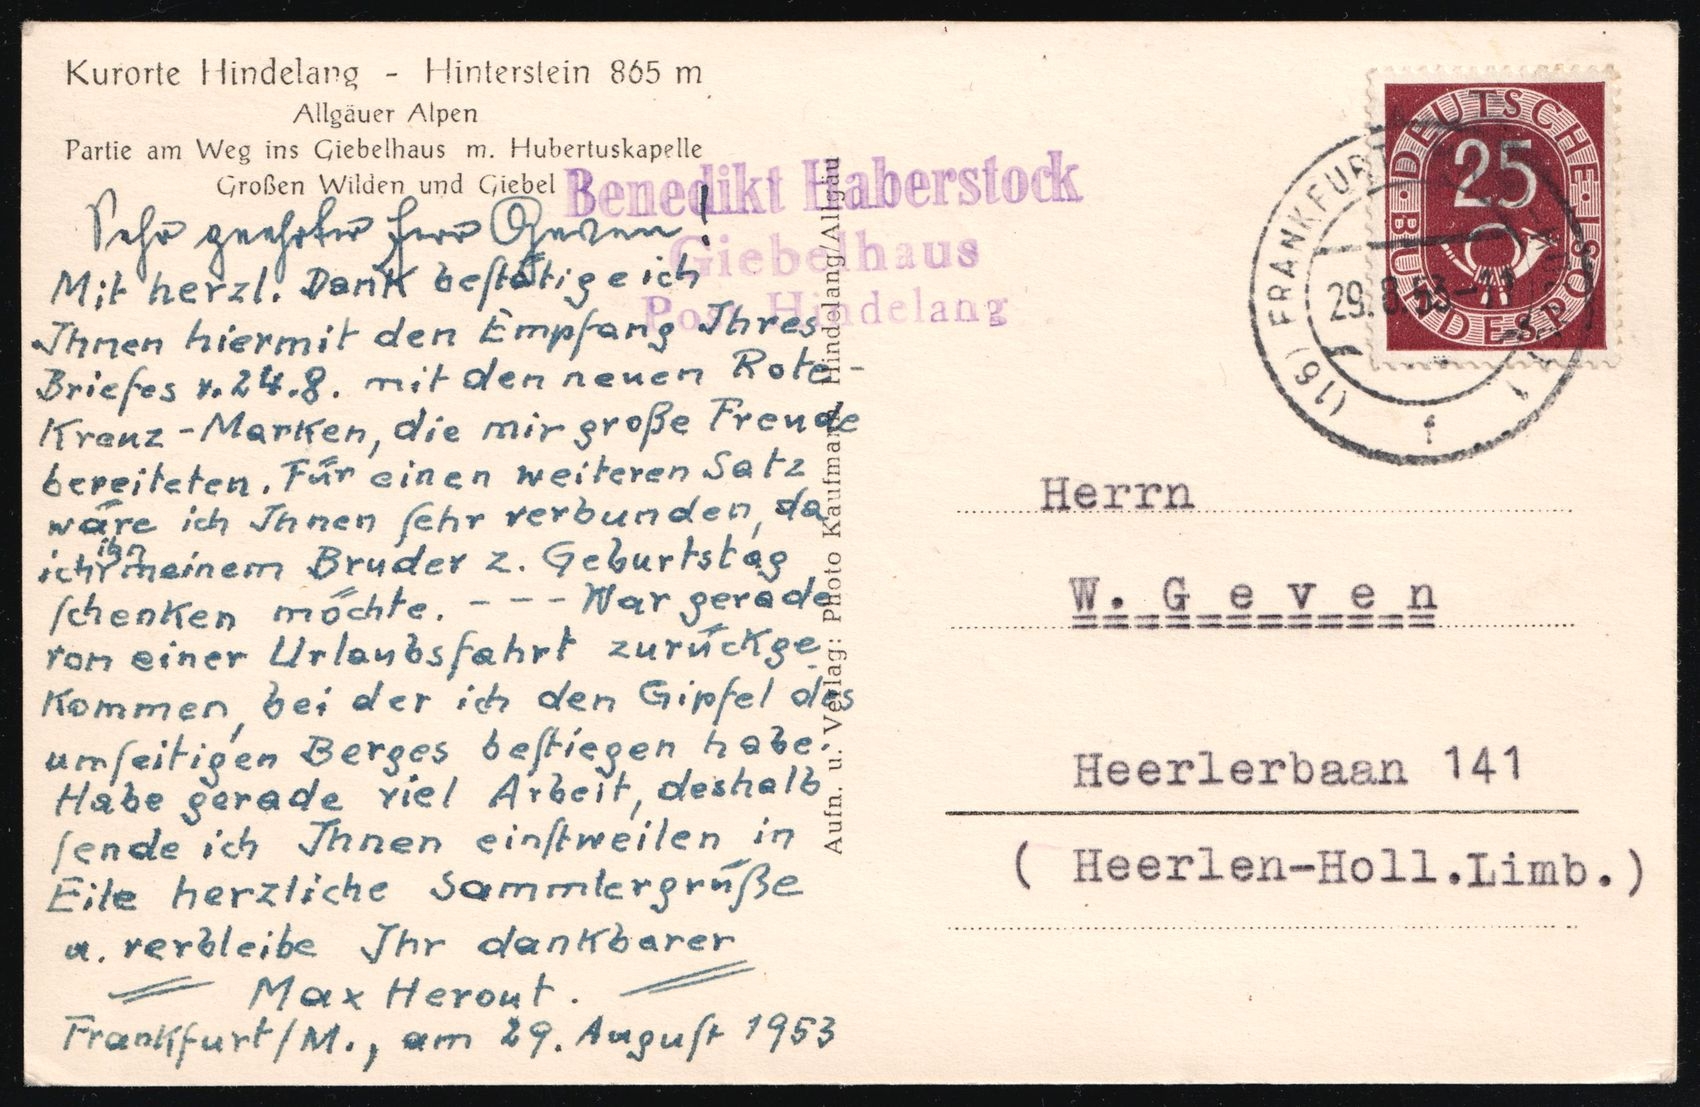 Kurorte Hindelang - Hinterstein 865 m
Allgäuer Alpen
Partie am Weg ins Giebelhaus m. Hubertuskapelle
Großen Wilden und Giebel
Benedikt Haberstock
Giebelhaus
Post Hindelang
Sehr geehrter Herr Geven!
Mit herzl. Dank bestätige ich
Ihnen hiermit den Empfang Ihres
Briefes v. 24.8. mit den neuen Rote-
Kreuz-Marken, die mir große Freude
bereiteten. Für einen weiteren Satz
wäre ich Ihnen sehr verbunden, da
ich ihn meinem Bruder z. Geburtstag
schenken möchte. --- War gerade
von einer Urlaubsfahrt zurückge-
kommen, bei der ich den Gipfel des
umseitigen Berges bestiegen habe.
Habe gerade viel Arbeit, deshalb
sende ich Ihnen einstweilen in
Eile herzliche Sammlergrüße
u. verbleibe Ihr dankbarer
Max Herout.
Frankfurt/M., am 29. August 1953
Aufn. u. Verlag: Photo Kaufmann, Hindelang/Allgäu
DEUTSCHE BUNDESPOST
25
(16) FRANKFURT
29.8.53
f
Herrn
W. Geven
Heerlerbaan 141
( Heerlen-Holl.Limb.)